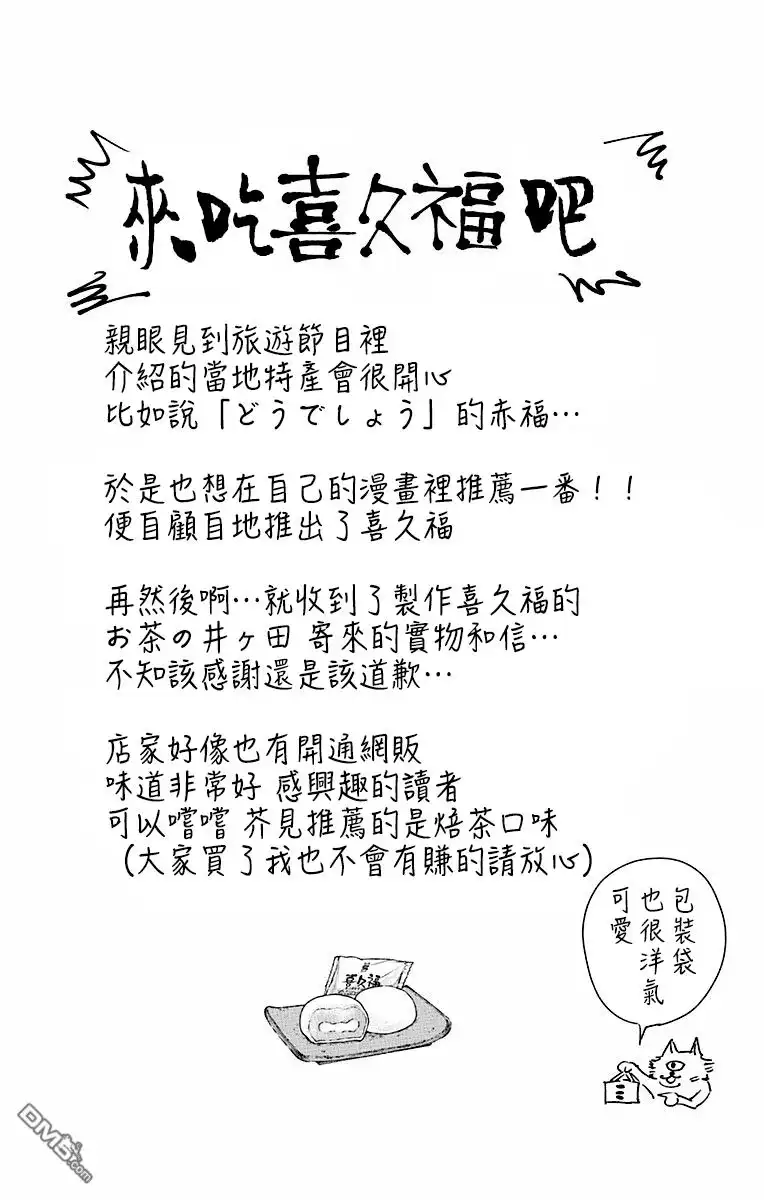 來吃喜久福吧
親眼見到旅遊節目裡
介紹的當地特產會很開心
比如說「どうでしょう」的赤福…
於是也想在自己的漫畫裡推薦一番！！
便自顧自地推出了喜久福
再然後啊…就收到了製作喜久福的
お茶の井ヶ田 寄來的實物和信…
不知該感謝還是該道歉…
店家好像也有開通網販
味道非常好 感興趣的讀者
可以嚐嚐 芥見推薦的是焙茶口味
（大家買了我也不會有賺的請放心）
包裝袋
也很洋氣
可愛
喜久福
DM5.com